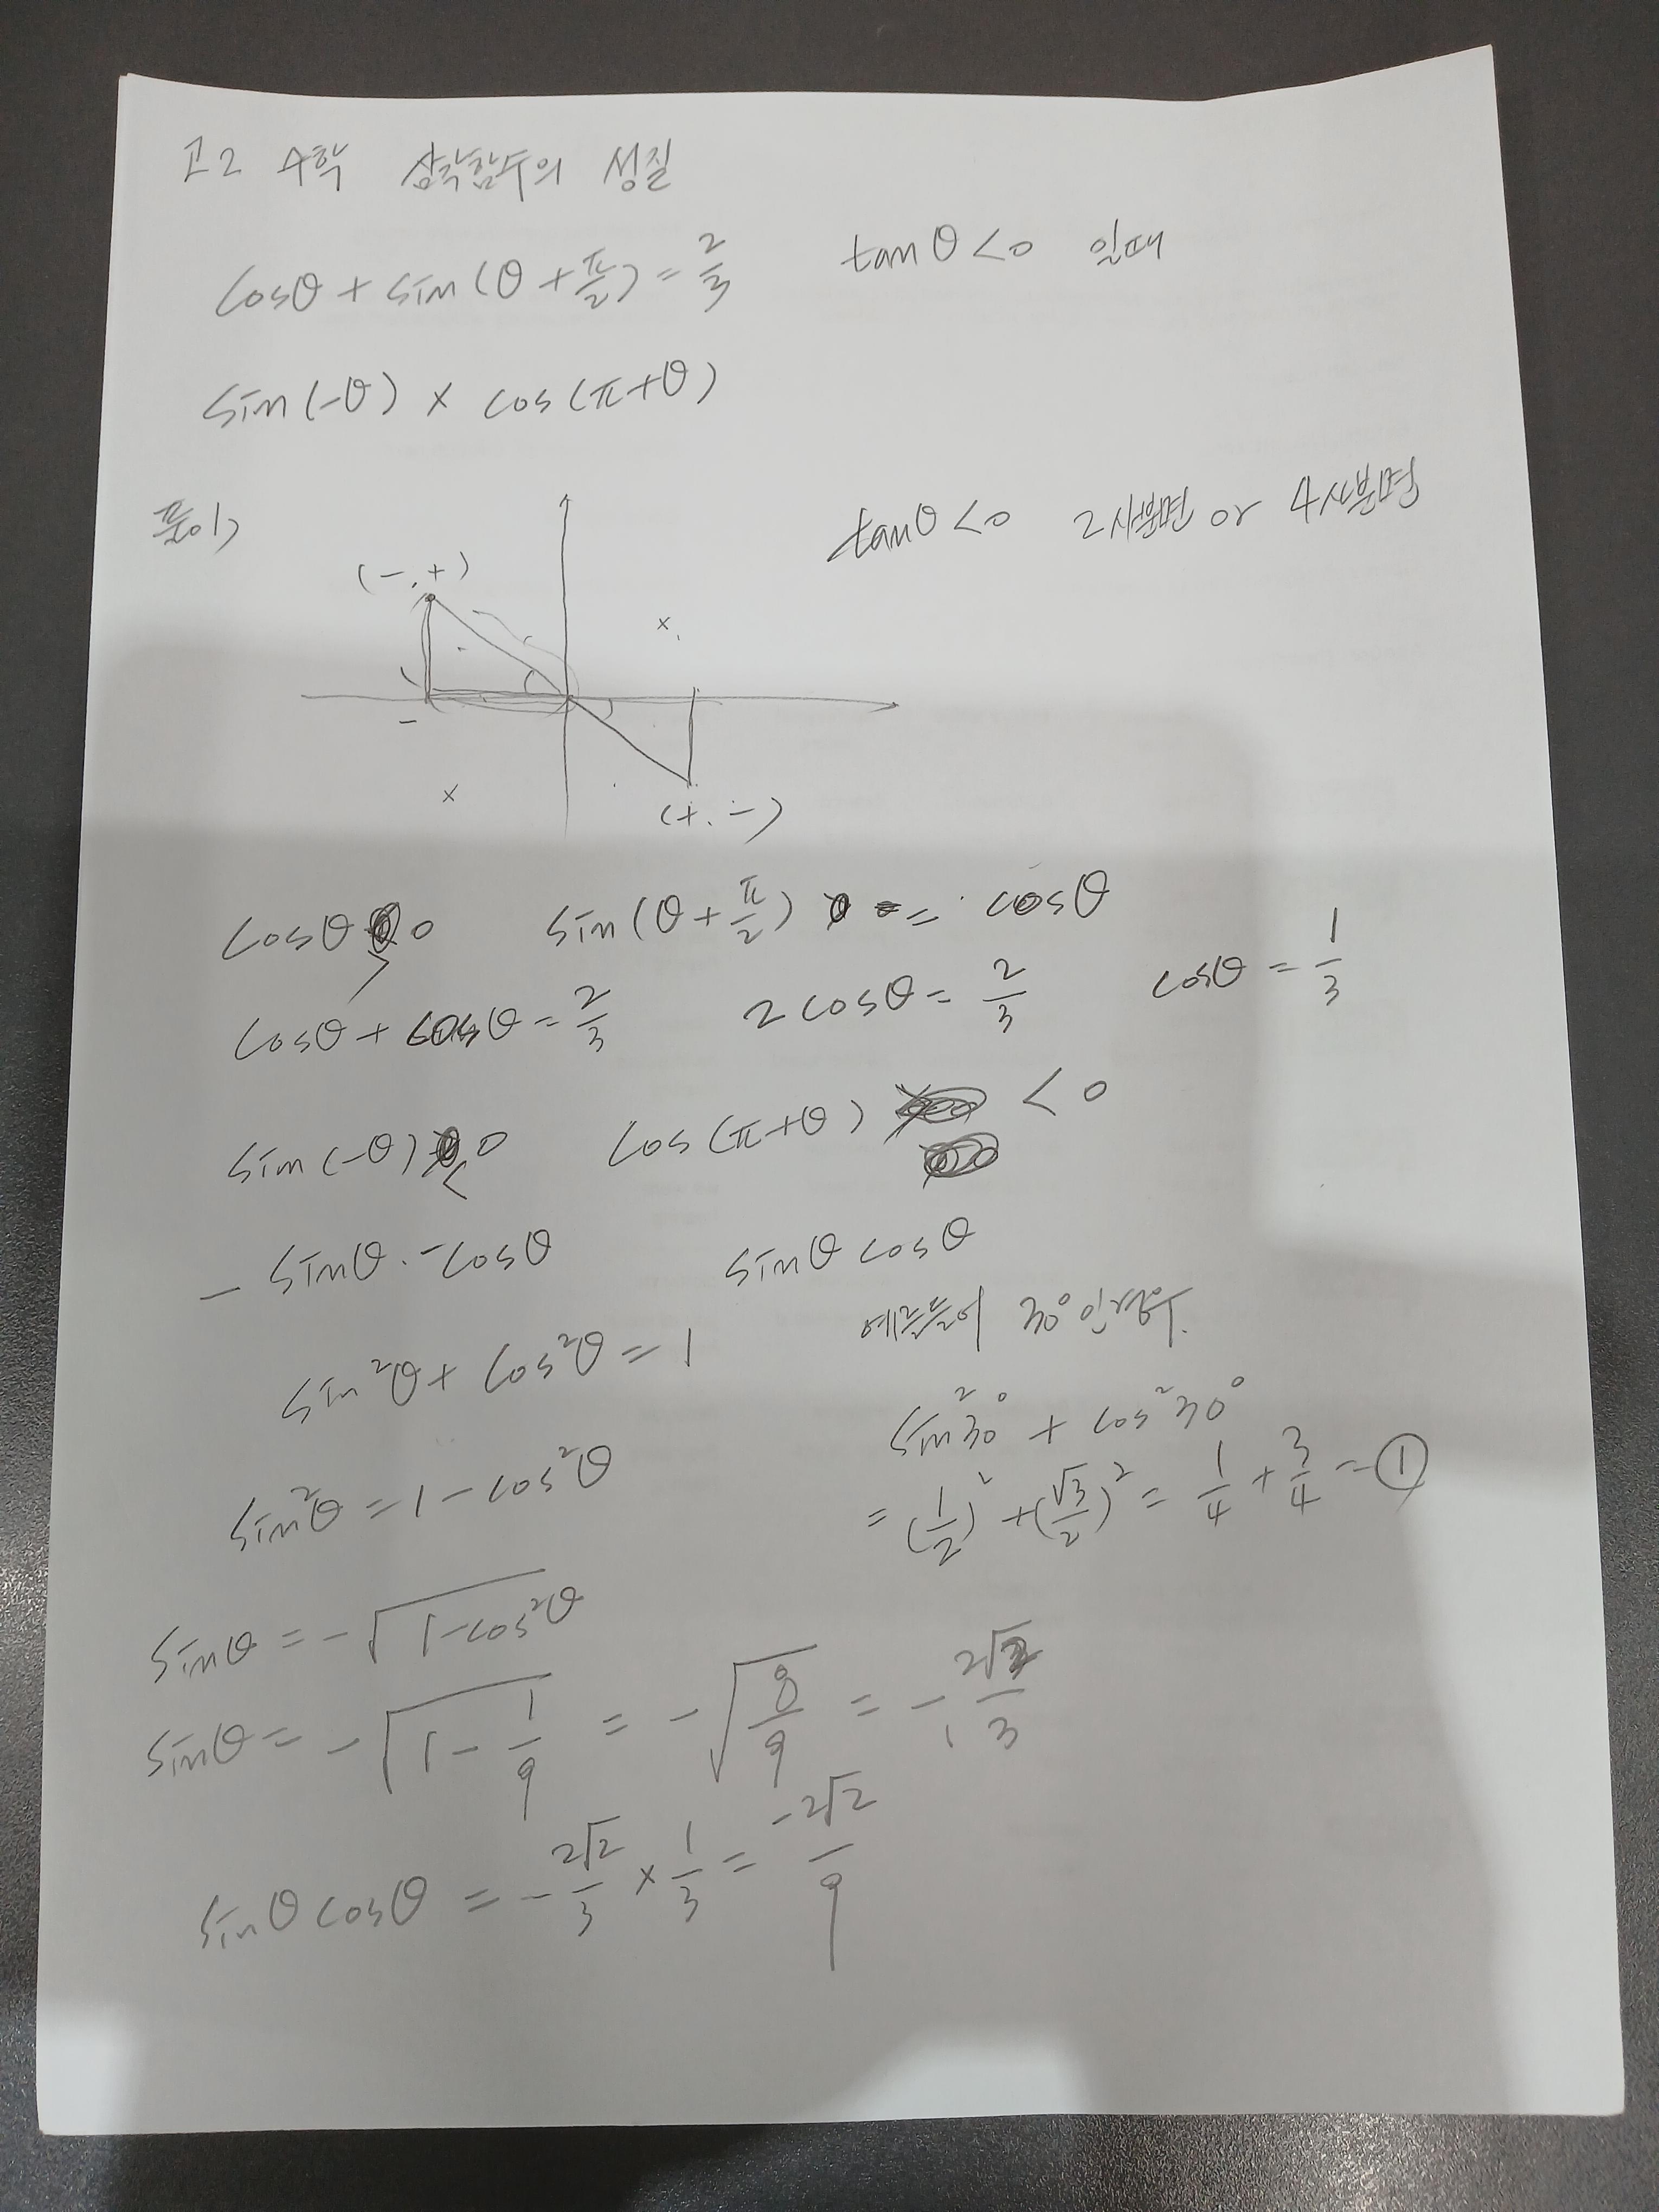 고2 수학 삼각함수의 성질
cosθ + sin(θ + π/2) = 2/3    tanθ < 0 일때
sin(-θ) × cos(π+θ)
풀이)    tanθ < 0  2사분면 or 4사분면
(-,+)
x
-
x
(+.-)
cosθ > 0    sin(θ + π/2) = cosθ
cosθ + cosθ = 2/3    2cosθ = 2/3    cosθ = 1/3
sin(-θ) < 0    cos(π+θ) < 0
- sinθ · -cosθ    sinθ cosθ
예를들어 30°인경우.
sin²θ + cos²θ = 1
sin²30° + cos²30°
sin²θ = 1 - cos²θ
= (1/2)² + (√3/2)² = 1/4 + 3/4 = ①
sinθ = -√(1-cos²θ)
sinθ = -√(1 - 1/9) = -√(8/9) = - 2√2/3
sinθ cosθ = - 2√2/3 × 1/3 = -2√2/9